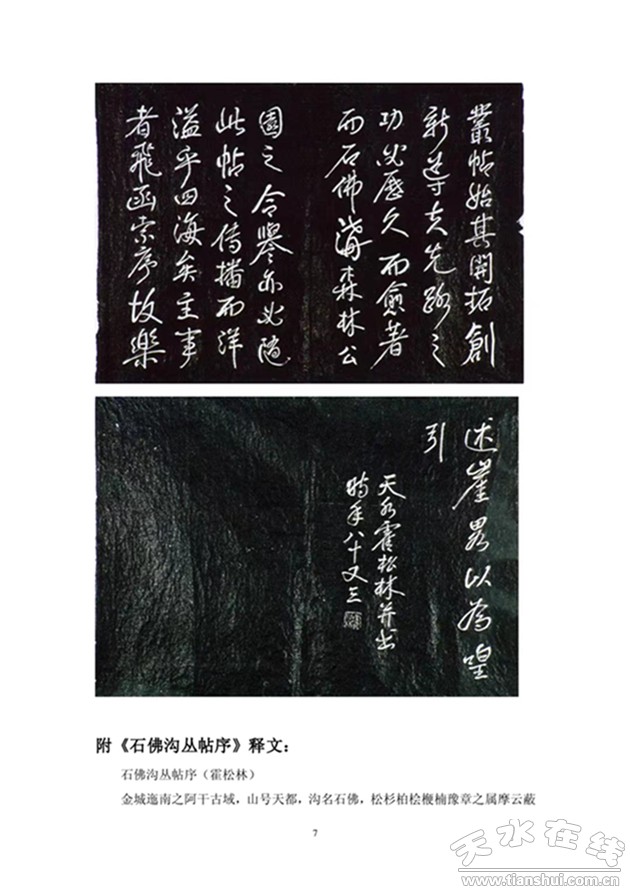 叢帖始其開拓創
新導夫先路之
功必歷久而愈著
而石佛溝森林公
園之令譽亦必隨
此帖之傳播而洋
溢乎四海矣主事
者飛函索序故樂
述崖畧以為喤
引
天水霍松林并書
時年八十又三
附《石佛沟丛帖序》释文：
石佛沟丛帖序（霍松林）
金城迤南之阿干古域，山号天都，沟名石佛，松杉柏桧楩楠豫章之属摩云蔽
7
天水在线
www.tianshui.com.cn